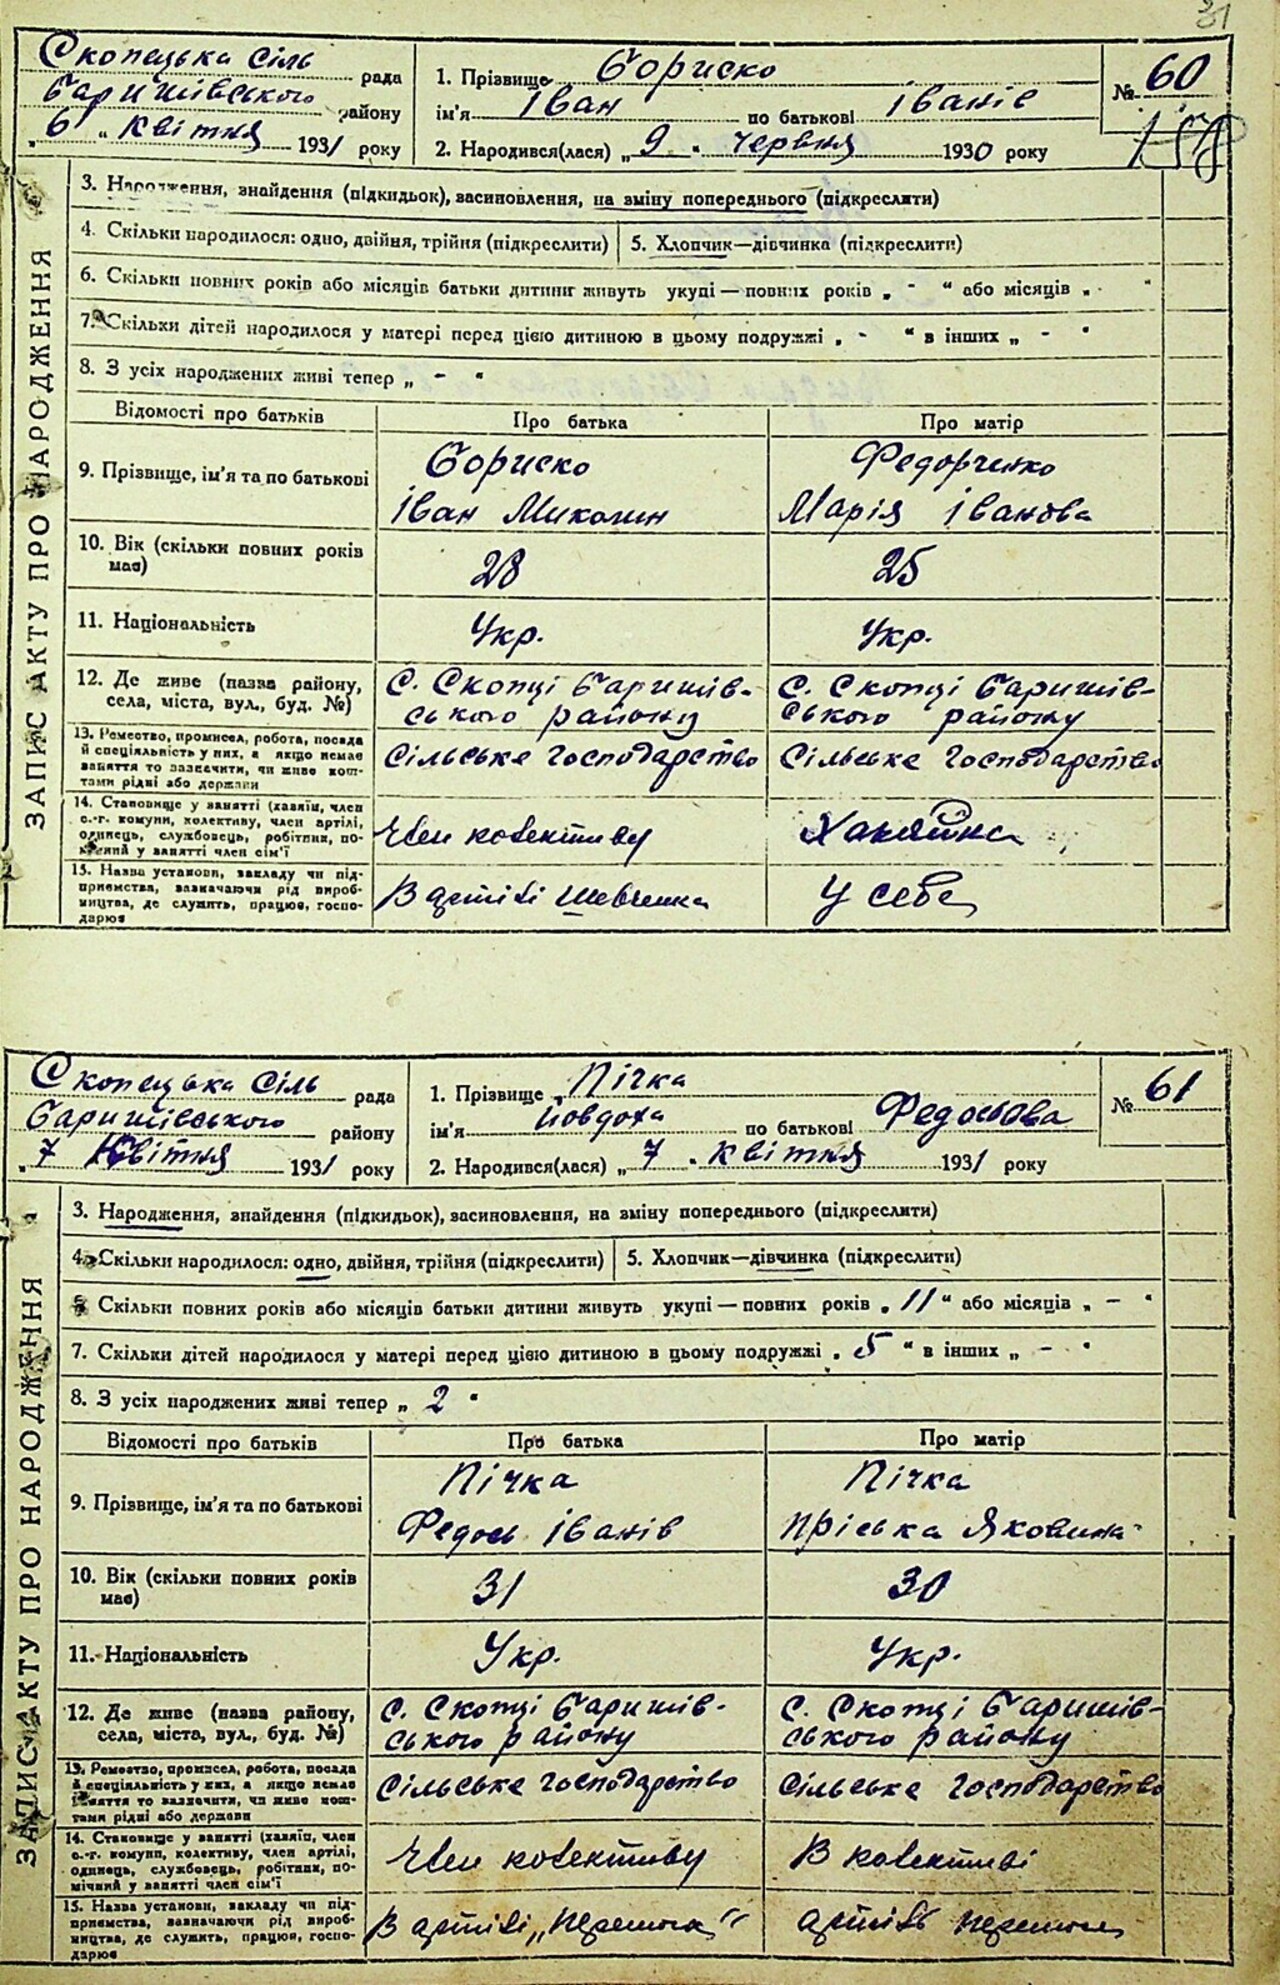 31
Скопецька Сіль рада
Баришівського району
" 6 " квітня 1931 року
1. Прізвище Бориско
ім'я Іван по батькові Іванів
2. Народився(лася) " 9 " червня 1930 року
№ 60
ЗАПИС АКТУ ПРО НАРОДЖЕННЯ
3. Народження, знайдення (підкидьок), засиновлення, на зміну попереднього (підкреслити)
4. Скільки народилося: одно, двійня, трійня (підкреслити)
5. Хлопчик—дівчинка (підкреслити)
6. Скільки повних років або місяців батьки дитини живуть укупі — повних років „ - “ або місяців „ - “
7. Скільки дітей народилося у матері перед цією дитиною в цьому подружжі „ - “ в інших „ - “
8. З усіх народжених живі тепер „ - “
Відомості про батьків Про батька Про матір
9. Прізвище, ім'я та по батькові
Бориско Федорченко
Іван Миколин Марія Іванова
10. Вік (скільки повних років має)
28 25
11. Національність Укр. Укр.
12. Де живе (назва району, села, міста, вул., буд. №)
С. Скопці Баришів- С. Скопці Баришів-
ського району ського району
13. Ремество, промисел, робота, посада
й спеціяльність у них, а якщо немає
заняття то зазначити, чи живе кош-
тами рідні або держави
Сільське господарство Сільське господарство
14. Становище у занятті (хазяїн, член
с.-г. комуни, колективу, член артілі,
одинець, службовець, робітник, по-
мічний у занятті член сім'ї
Член колективу Хазяйка
15. Назва установи, закладу чи під-
приємства, зазначаючи рід вироб-
ництва, де служить, працює, госпо-
дарює
В артілі Шевченка У себе
Скопецька Сіль рада
Баришівського району
" 7 Квітня 1931 року
1. Прізвище Пічка
ім'я Йовдоха по батькові Федосьова
2. Народився(лася) " 7 " квітня 1931 року
№ 61
ЗАПИС АКТУ ПРО НАРОДЖЕННЯ
3. Народження, знайдення (підкидьок), засиновлення, на зміну попереднього (підкреслити)
4. Скільки народилося: одно, двійня, трійня (підкреслити)
5. Хлопчик—дівчинка (підкреслити)
Скільки повних років або місяців батьки дитини живуть укупі — повних років „ 11 “ або місяців „ — “
7. Скільки дітей народилося у матері перед цією дитиною в цьому подружжі „ 5 “ в інших „ - “
8. З усіх народжених живі тепер „ 2 “
Відомості про батьків Про батька Про матір
9. Прізвище, ім'я та по батькові
Пічка Пічка
Федось Іванів Пріська Яковина
10. Вік (скільки повних років має)
31 30
11. Національність Укр. Укр.
12. Де живе (назва району, села, міста, вул., буд. №)
С. Скопці Баришів- С. Скопці Баришів-
ського району ського району
13. Ремество, промисел, робота, посада
й спеціяльність у них, а якщо немає
заняття то зазначити, чи живе кош-
тами рідні або держави
Сільське господарство Сільське господарство
14. Становище у занятті (хазяїн, член
с.-г. комуни, колективу, член артілі,
одинець, службовець, робітник, по-
мічний у занятті член сім'ї
Член колективу В колективі
15. Назва установи, закладу чи під-
приємства, зазначаючи рід вироб-
ництва, де служить, працює, госпо-
дарює
В артілі „Перемога“ артіль Перемога